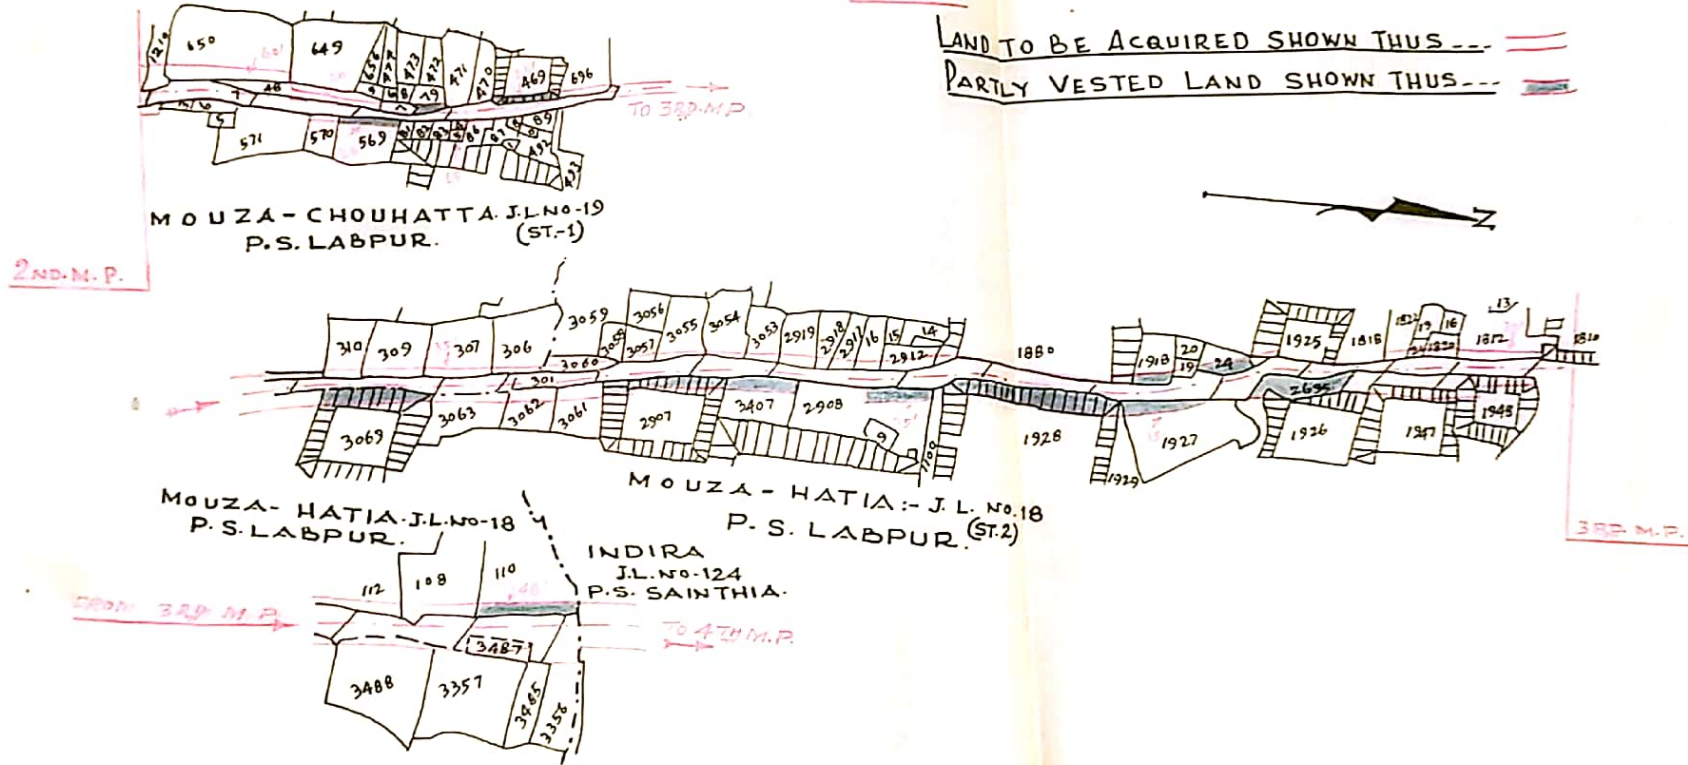 LAND TO BE ACQUIRED SHOWN THUS ---
PARTLY VESTED LAND SHOWN THUS ---
1210 650 649 656 477 473 472 471 470 469 696
48
TO 3RD. M.P.
5 571 570 569 81 82 83 86 87 89 492 493
MOUZA - CHOUHATTA. J.L.NO-19
(ST.-1)
P.S. LABPUR.
Z
2ND. M.P.
310 309 307 306 3059 3058 3056 3057 3055 3054 3053 2919 2918 2917 16 15 14 2912 1880 1918 20 19 24 1925 1818 1822 19 16 1812 13 1810
3060
301
3069 3063 3062 3061 2907 3407 2908 9 1100 1928 1929 1927 2695 1926 1947 1948
MOUZA - HATIA. J.L.NO-18
P.S. LABPUR.
MOUZA - HATIA :- J.L. NO.18
P.S. LABPUR. (ST.2)
3RD. M.P.
INDIRA
J.L. NO-124
P.S. SAINTHIA.
112 108 110
FROM 3RD M.P.
TO 4TH M.P.
3487
3488 3357 3485 3356